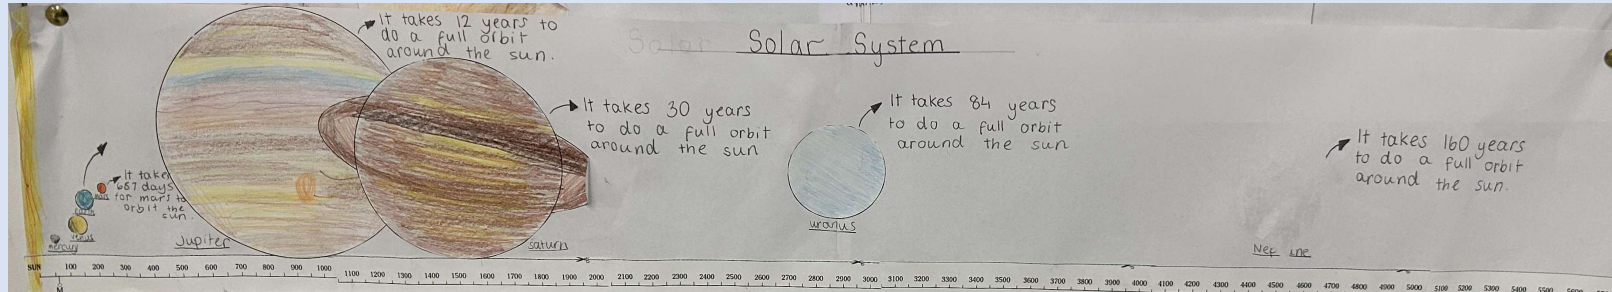 Solar System
It takes 12 years to
do a full orbit
around the sun.
It takes 30 years
to do a full orbit
around the sun
It takes 84 years
to do a full orbit
around the sun
It takes 160 years
to do a full orbit
around the sun.
It take
687 days
for mars to
orbit the
sun.
mars
earth
venus
mercury
Jupiter
saturn
uranus
Nep une
SUN 100 200 300 400 500 600 700 800 900 1000 1100 1200 1300 1400 1500 1600 1700 1800 1900 2000 2100 2200 2300 2400 2500 2600 2700 2800 2900 3000 3100 3200 3300 3400 3500 3600 3700 3800 3900 4000 4100 4200 4300 4400 4500 4600 4700 4800 4900 5000 5100 5200 5300 5400 5500
M